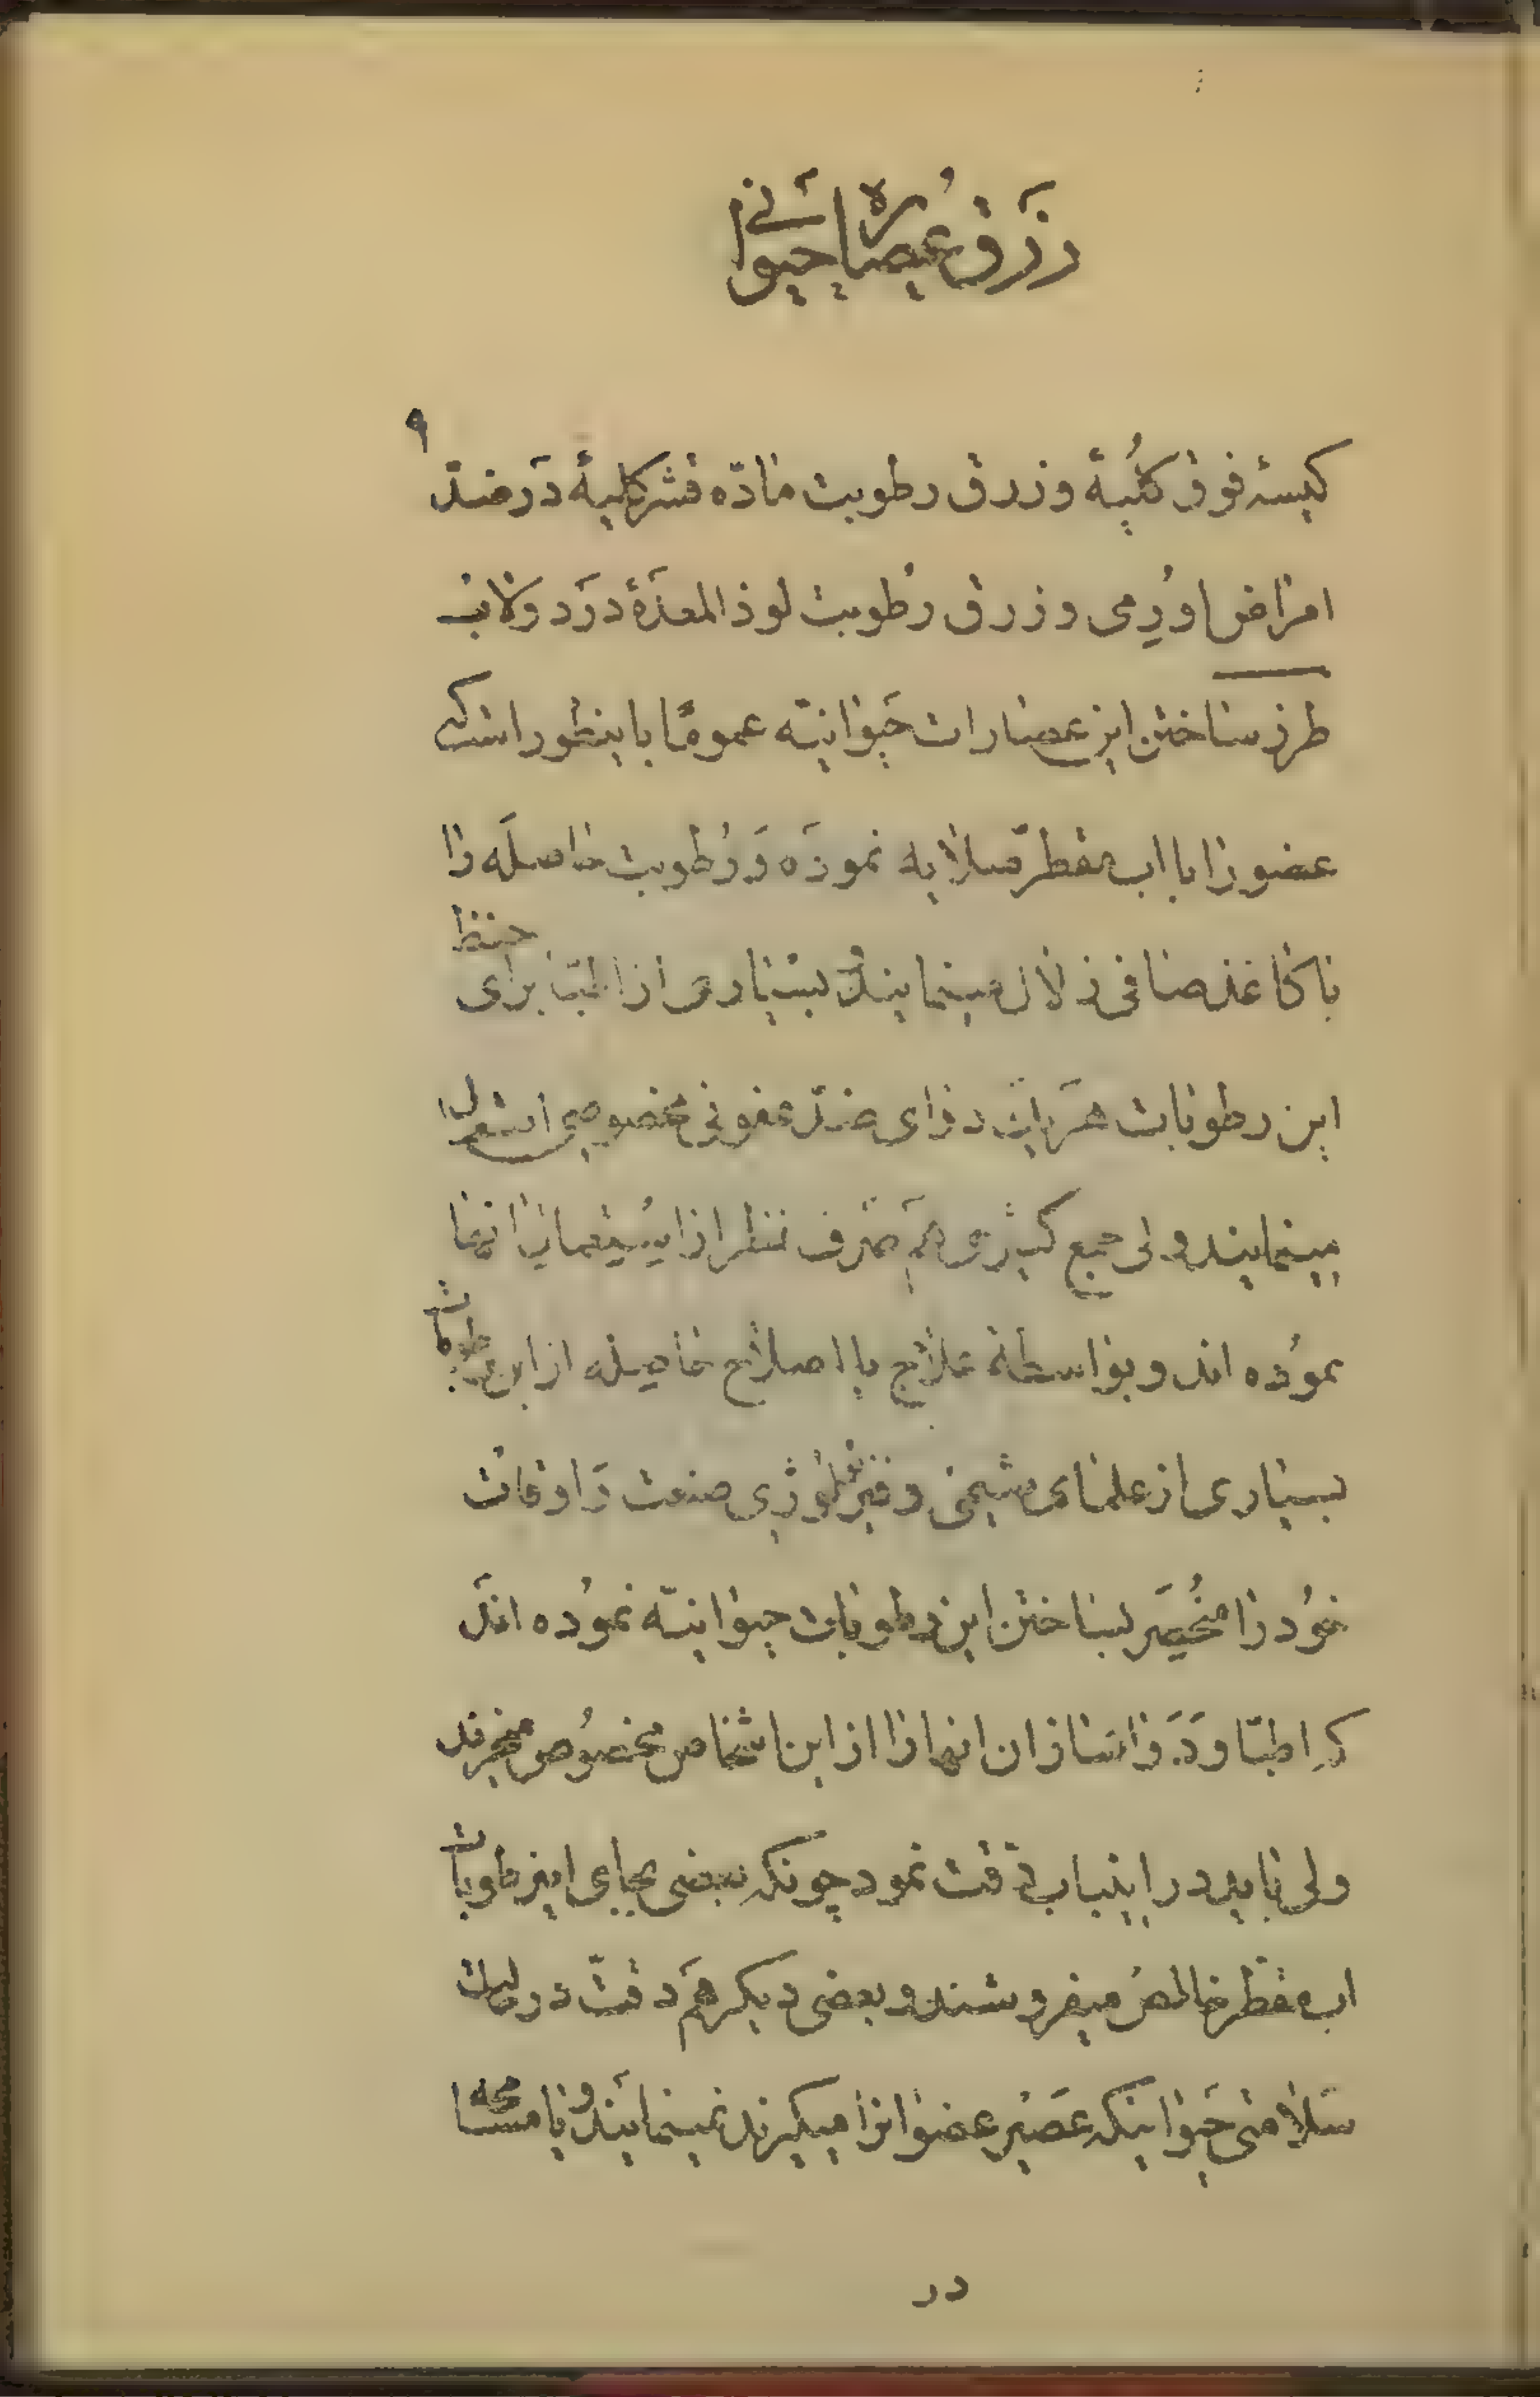 در زرق عصاره حیوانی
۹
کیسهٔ فوق کلیهٔ و زرق رطوبت مادّه قشر کلیهٔ در ضدّ
امراض اورمی و زرق رطوبت لوذالمعدهٔ در دولاب
طرز ساختن این عصارات حیوانیّه عموماً باینطور است که
عضو را با اب مقطر صلایه نموده و رطوبت حاصله را
با کاغذ صافی زلال مینمایند بسیاری از اطبّا برای حفظ
این رطوبات هریک دوای ضدّ عفونی مخصوصی استعمال
مینمایند ولی جمع کثیری هم صرف نظر از استعمال انها
نموده اند و بواسطهٔ علاج یا اصلاح حاصله از این رطوبات
بسیاری از علمای شیمی و فیزیلوژی صنعت و اوقات
خود را منحصر بساختن این رطوبات حیوانیّه نموده اند
که اطبّا و دواسازان انها را از این اشخاص مخصوص میخرند
ولی باید در اینباب دقت نمود چونکه بعضی بجای این رطوبات
اب مقطر خالص میفروشند و بعضی دیکر هم دقّت در حالت
سلامتی حیوانیکه عصیر عضو انرا میکیرند نمینمایند و با مسامحه
در